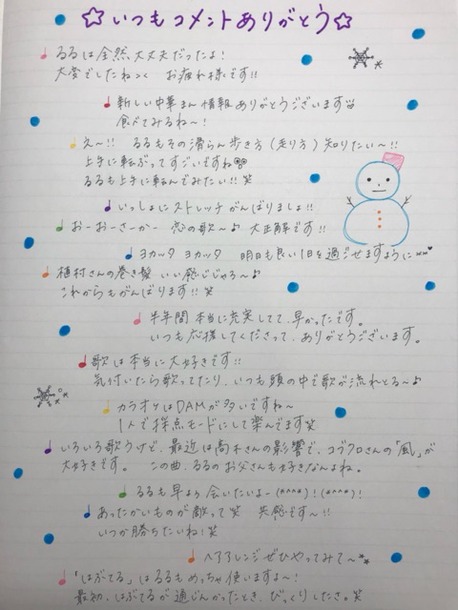 ☆いつもコメントありがとう☆
♪るるは全然大丈夫だったよ!
大変でしたねっ お疲れ様です!!
♪新しい中華まん情報ありがとうございます
食べてみるね〜!
♪え〜!! るるもその滑らん歩き方(走り方)知りたい〜!!
上手に転ぶってすごいですね
るるも上手に転んでみたい!! 笑
♪いっしょにストレッチがんばりましょ!!
♪おーおーさーかー 恋の歌〜♪ 大正解です!!
♪ヨカッタ ヨカッタ 明日も良い1日を過ごせますように
♪植村さんの巻き髪 いい感じじゃろ〜♪
これからもがんばります!! 笑
♪半年間 本当に充実してて、早かったです。
いつも応援してくださって、ありがとうございます。
♪歌は本当に大好きです!!
気付いたら歌ってたり、いつも頭の中で歌が流れとる〜♪
♪カラオケはDAMが多いですね〜
1人で採点モードにして楽んでます笑
♪いろいろ歌うけど、最近は高木さんの影響で、コブクロさんの「風」が
大好きです。 この曲、るるのお父さんも好きなんよね。
♪るるも早よう会いたいよー(*^^*)!(*^^*)!
♪あったかいものが敵って笑 共感です〜!!
いつか勝ちたいね!笑
♪ヘアアレンジぜひやってみて〜
♪「はぶてる」はるるもめっちゃ使いますよ〜!
最初、はぶてるが通じんかったとき、びっくりしたさ。笑